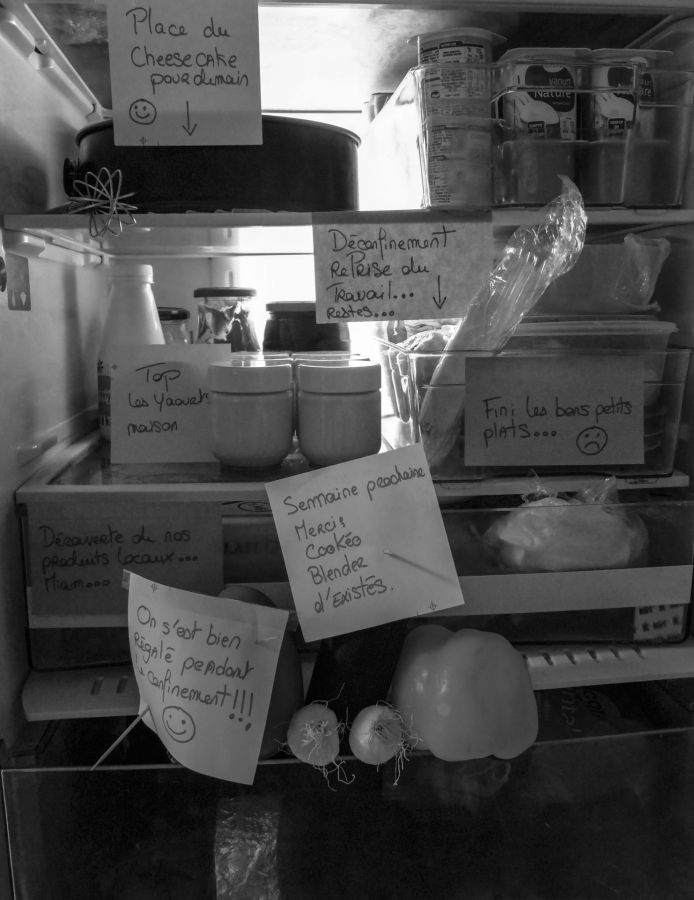 Place du
Cheese cake
pour demain
yaourt
Nature
Déconfinement
Reprise du
Travail...
Restes...
Top
Les Yaourts
maison
Fini les bons petits
plats...
Semaine prochaine
Merci
Cookéo
Blender
d'existés.
Découverte de nos
produits locaux...
Miam...
On s'est bien
Régalé pendant
le confinement!!!